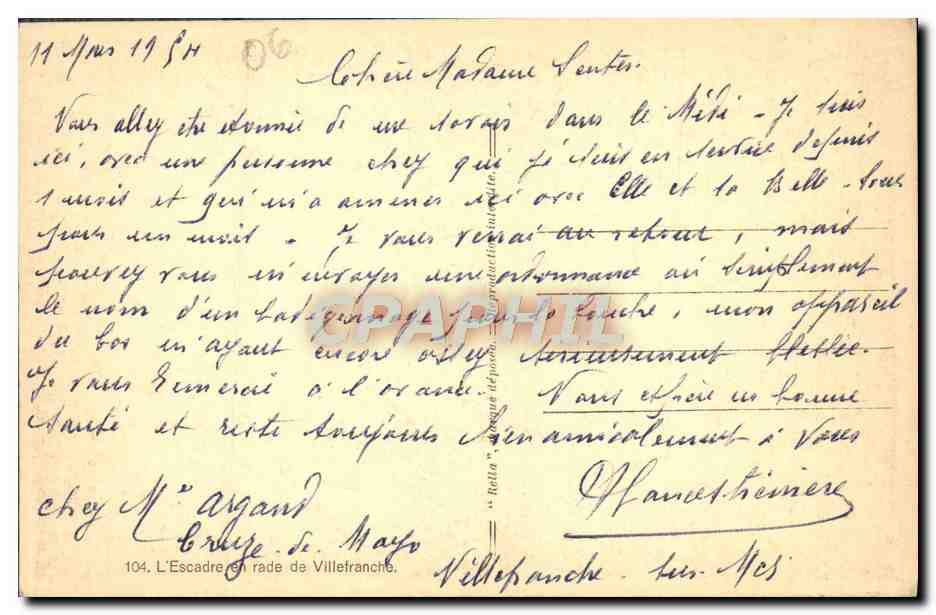 11 Mars 1954
06
Chère Madame
Vous allez être étonnée de me savoir dans le Midi - Je suis
ici, avec une personne chez qui je suis en depuis
1 mois et qui m'a amenée ici avec Elle et la Belle-Soeur
pour un mois - Je vous verrai au retour, mais
pouvez vous m'envoyer une ordonnance ou simplement
le nom d'un badigeonnage pour la bouche, mon appareil
du bas m'ayant encore assez sérieusement blessée.
Je vous remercie à l'avance. Vous espère en bonne
santé et reste toujours bien amicalement à vous
chez Me Argand
Cruze-de-Mayo
Villefranche-sur-Mer
104. L'Escadre en rade de Villefranche.
"Rella", marque déposée. Reproduction interdite.
CPAPHIL